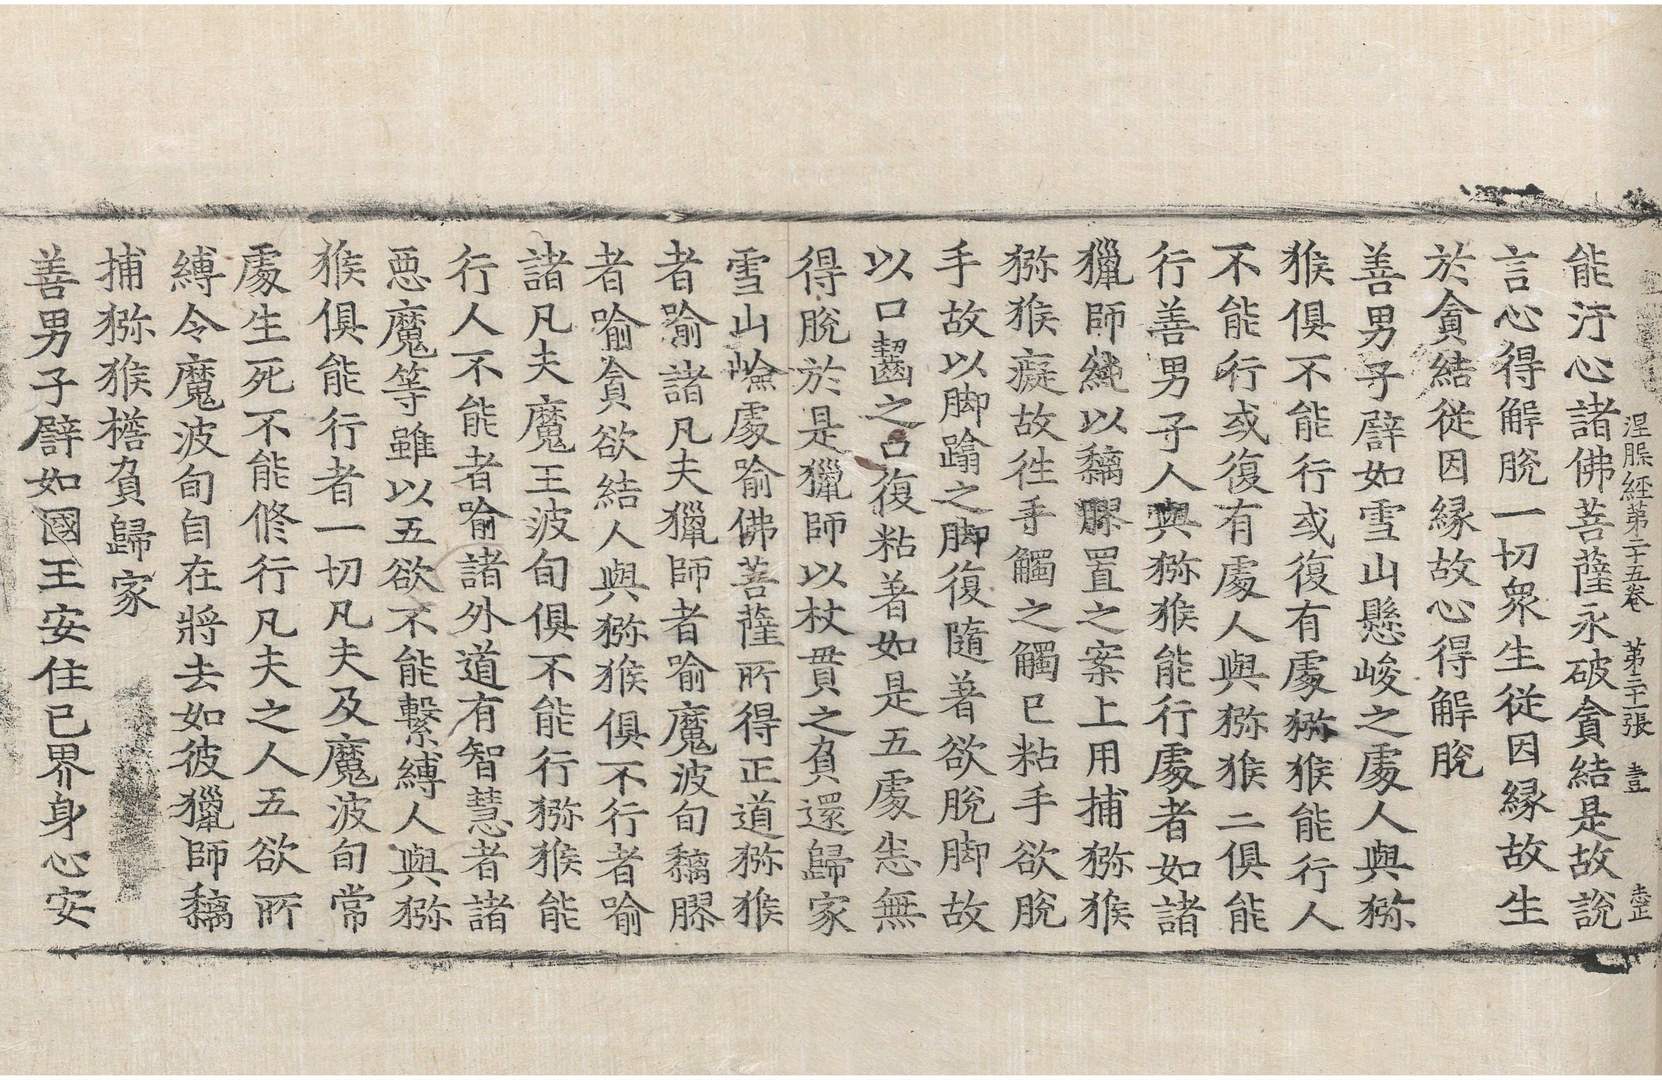 涅槃經第二十五卷 第三十一張 壹 志正
能汙心諸佛菩薩永破貪結是故說
言心得解脫一切衆生從因緣故生
於貪結從因緣故心得解脫
善男子譬如雪山懸峻之處人與獼
猴俱不能行或復有處獼猴能行人
不能行或復有處人與獼猴二俱能
行善男子人與獼猴能行處者如諸
獵師純以黐膠置之案上用捕獼猴
獼猴癡故徃手觸之觸已粘手欲脫
手故以脚蹋之脚復隨著欲脫脚故
以口齧之口復粘著如是五處悉無
得脫於是獵師以杖貫之負還歸家
雪山嶮處喻佛菩薩所得正道獼猴
者喻諸凡夫獵師者喻魔波旬黐膠
者喻貪欲結人與獼猴俱不行者喻
諸凡夫魔王波旬俱不能行獼猴能
行人不能者喻諸外道有智慧者諸
惡魔等雖以五欲不能繫縛人與獼
猴俱能行者一切凡夫及魔波旬常
處生死不能修行凡夫之人五欲所
縛令魔波旬自在將去如彼獵師黐
捕獼猴擔負歸家
善男子譬如國王安住已界身心安